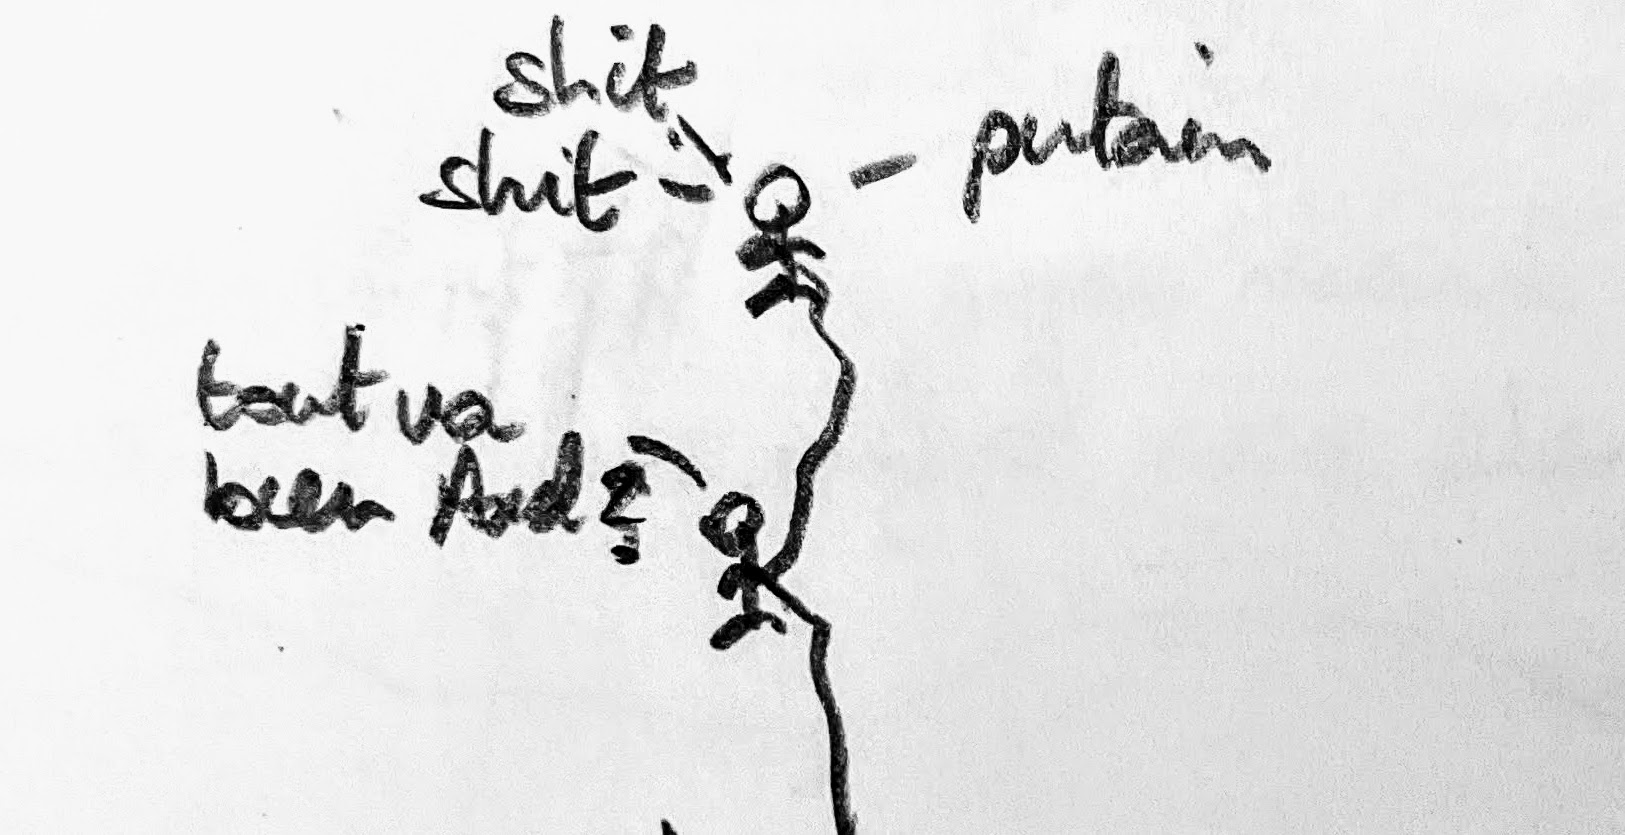 shit
shit
putain
tout va
bien Axel ?